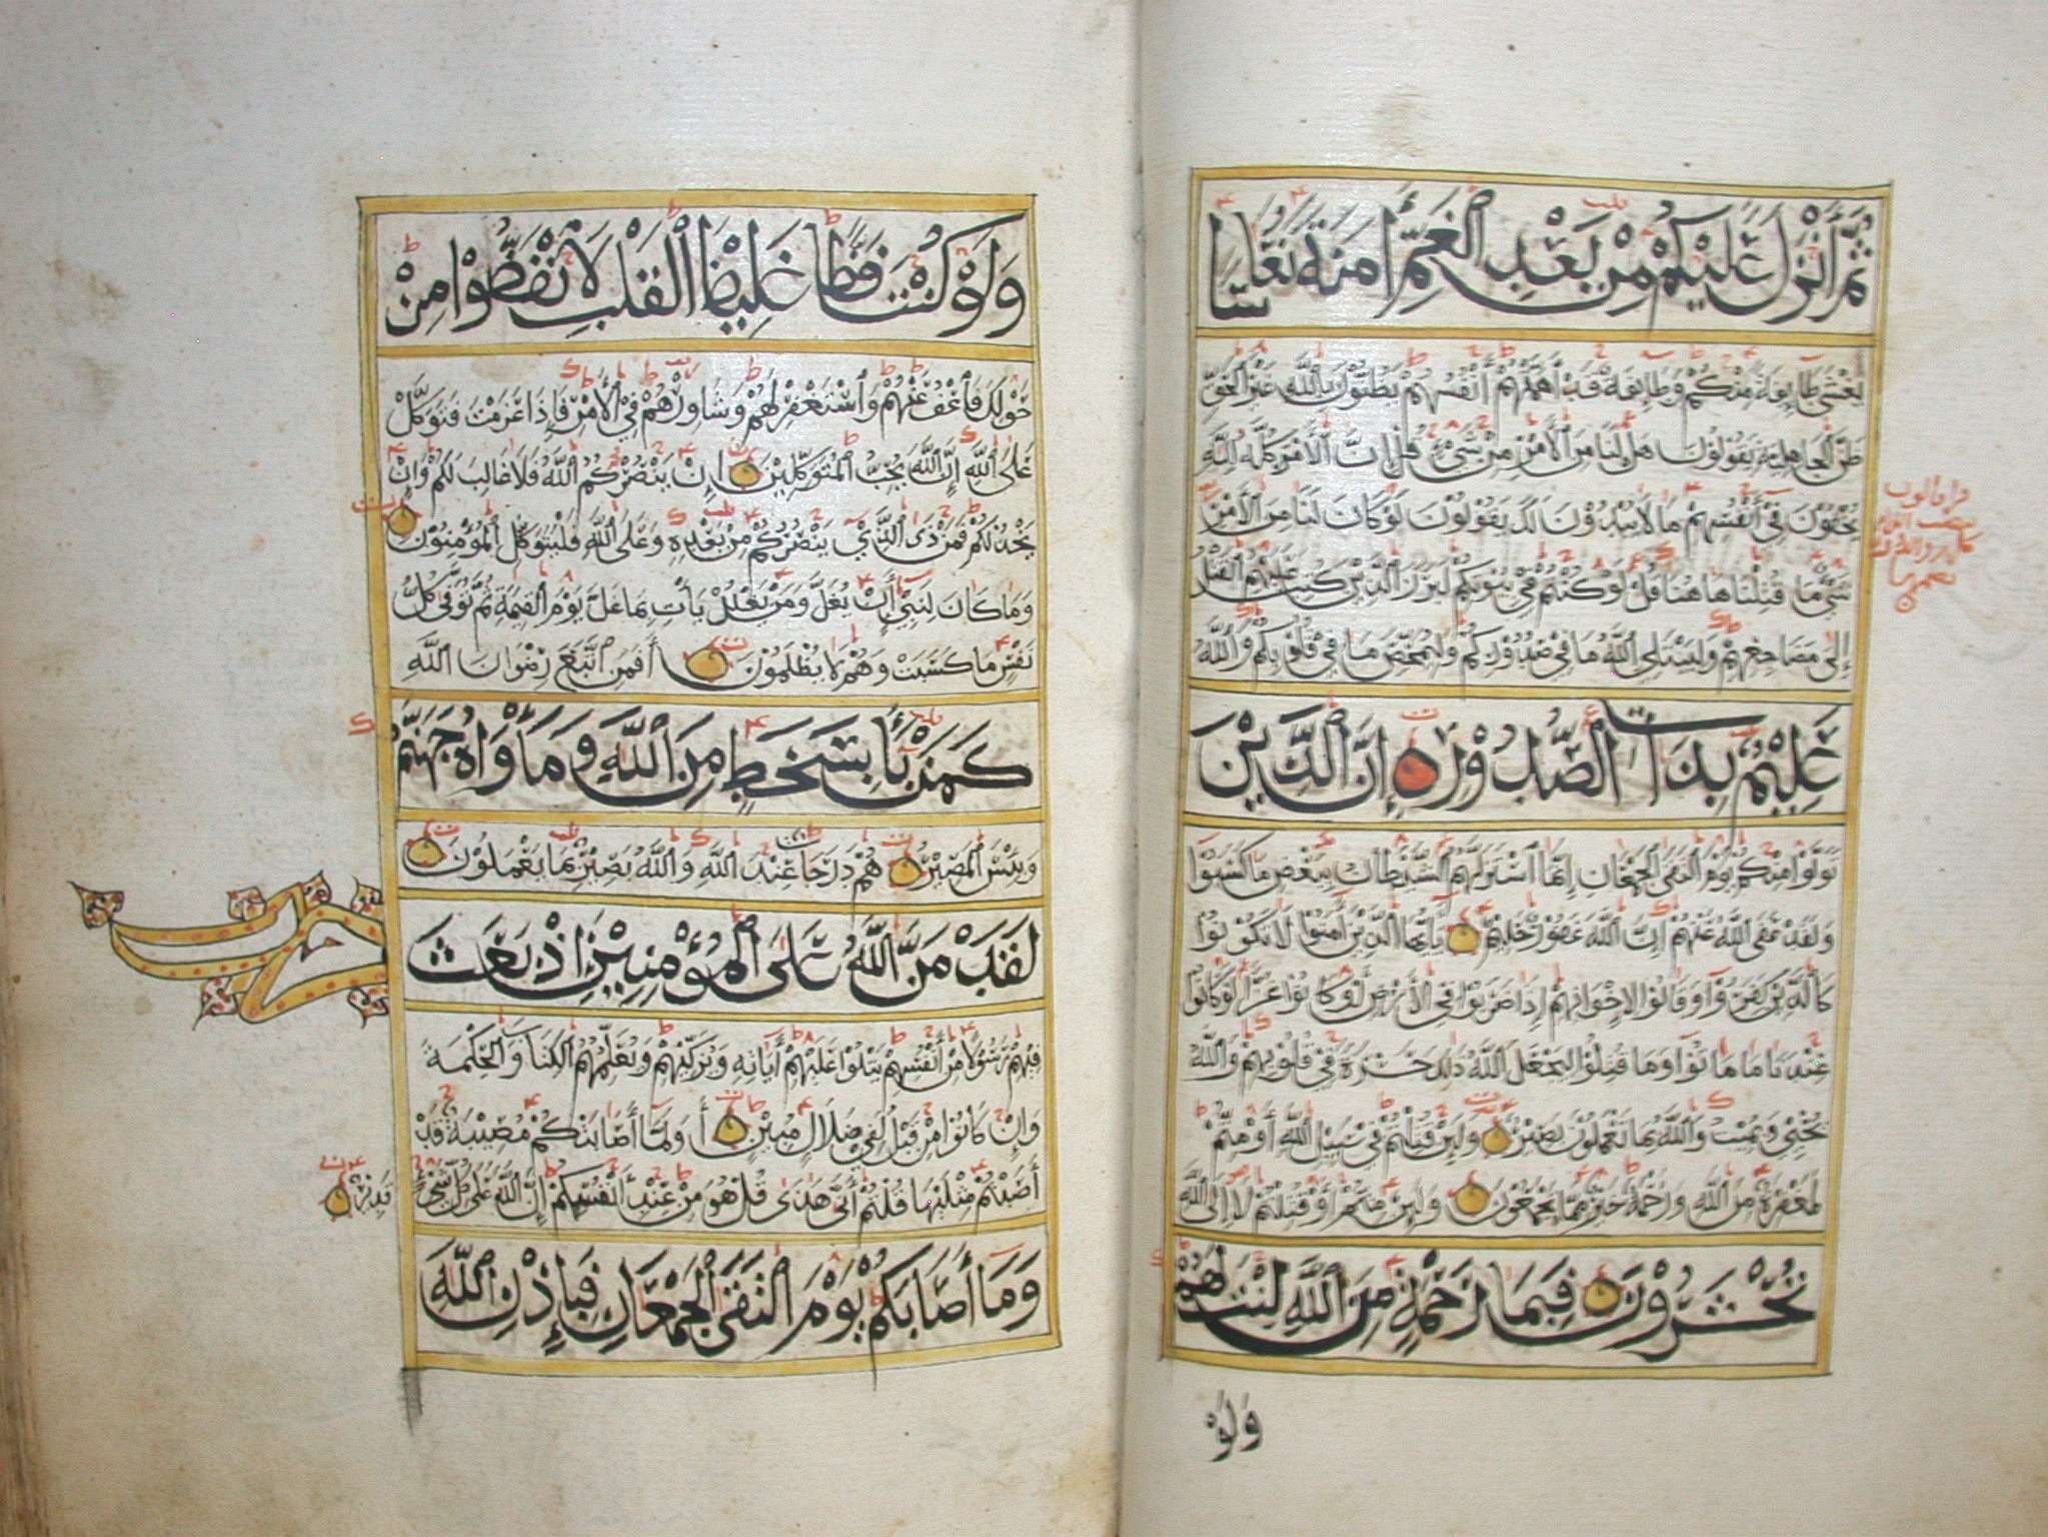 ثُمَّ أَنْزَلَ عَلَيْكُمْ مِنْ بَعْدِ الْغَمِّ أَمَنَةً نُعَاسًا
يَغْشَى طَائِفَةً مِنْكُمْ وَطَائِفَةٌ قَدْ أَهَمَّتْهُمْ أَنْفُسُهُمْ يَظُنُّونَ بِاللَّهِ غَيْرَ الْحَقِّ
ظَنَّ الْجَاهِلِيَّةِ يَقُولُونَ هَلْ لَنَا مِنَ الْأَمْرِ مِنْ شَيْءٍ قُلْ إِنَّ الْأَمْرَ كُلَّهُ لِلَّهِ
يُخْفُونَ فِي أَنْفُسِهِمْ مَا لَا يُبْدُونَ لَكَ يَقُولُونَ لَوْ كَانَ لَنَا مِنَ الْأَمْرِ
شَيْءٌ مَا قُتِلْنَا هَاهُنَا قُلْ لَوْ كُنْتُمْ فِي بُيُوتِكُمْ لَبَرَزَ الَّذِينَ كُتِبَ عَلَيْهِمُ الْقَتْلُ
إِلَى مَضَاجِعِهِمْ وَلِيَبْتَلِيَ اللَّهُ مَا فِي صُدُورِكُمْ وَلِيُمَحِّصَ مَا فِي قُلُوبِكُمْ وَاللَّهُ
عَلِيمٌ بِذَاتِ الصُّدُورِ إِنَّ الَّذِينَ
تَوَلَّوْا مِنْكُمْ يَوْمَ الْتَقَى الْجَمْعَانِ إِنَّمَا اسْتَزَلَّهُمُ الشَّيْطَانُ بِبَعْضِ مَا كَسَبُوا
وَلَقَدْ عَفَى اللَّهُ عَنْهُمْ إِنَّ اللَّهَ غَفُورٌ حَلِيمٌ يَاأَيُّهَا الَّذِينَ آمَنُوا لَا تَكُونُوا
كَالَّذِينَ كَفَرُوا وَقَالُوا لِإِخْوَانِهِمْ إِذَا ضَرَبُوا فِي الْأَرْضِ أَوْ كَانُوا غُزًّا لَوْ كَانُوا
عِنْدَنَا مَا مَاتُوا وَمَا قُتِلُوا لِيَجْعَلَ اللَّهُ ذَلِكَ حَسْرَةً فِي قُلُوبِهِمْ وَاللَّهُ
يُحْيِي وَيُمِيتُ وَاللَّهُ بِمَا تَعْمَلُونَ بَصِيرٌ وَلَئِنْ قُتِلْتُمْ فِي سَبِيلِ اللَّهِ أَوْ مُتُّمْ
لَمَغْفِرَةٌ مِنَ اللَّهِ وَرَحْمَةٌ خَيْرٌ مِمَّا يَجْمَعُونَ وَلَئِنْ مُتُّمْ أَوْ قُتِلْتُمْ لَا إِلَى اللَّهِ
تُحْشَرُونَ فَبِمَا رَحْمَةٍ مِنَ اللَّهِ لِنْتَ لَهُمْ
وَلَوْ
وَلَوْ كُنْتَ فَظًّا غَلِيظَ الْقَلْبِ لَانْفَضُّوا مِنْ
حَوْلِكَ فَاعْفُ عَنْهُمْ وَاسْتَغْفِرْ لَهُمْ وَشَاوِرْهُمْ فِي الْأَمْرِ فَإِذَا عَزَمْتَ فَتَوَكَّلْ
عَلَى اللَّهِ إِنَّ اللَّهَ يُحِبُّ الْمُتَوَكِّلِينَ إِنْ يَنْصُرْكُمُ اللَّهُ فَلَا غَالِبَ لَكُمْ وَإِنْ
يَخْذُلْكُمْ فَمَنْ ذَى الَّذِي يَنْصُرُكُمْ مِنْ بَعْدِهِ وَعَلَى اللَّهِ فَلْيَتَوَكَّلِ الْمُؤْمِنُونَ
وَمَا كَانَ لِنَبِيٍّ أَنْ يَغُلَّ وَمَنْ يَغْلُلْ يَأْتِ بِمَا غَلَّ يَوْمَ الْقِيمَةِ ثُمَّ تُوَفَّى كُلُّ
نَفْسٍ مَا كَسَبَتْ وَهُمْ لَا يُظْلَمُونَ أَفَمَنِ اتَّبَعَ رِضْوَانَ اللَّهِ
كَمَنْ بَاءَ بِسَخَطٍ مِنَ اللَّهِ وَمَأْوَاهُ جَهَنَّمُ
وَبِئْسَ الْمَصِيرُ هُمْ دَرَجَاتٌ عِنْدَ اللَّهِ وَاللَّهُ بَصِيرٌ بِمَا يَعْمَلُونَ
حزب
لَقَدْ مَنَّ اللَّهُ عَلَى الْمُؤْمِنِينَ إِذْ بَعَثَ
فِيهِمْ رَسُولًا مِنْ أَنْفُسِهِمْ يَتْلُوا عَلَيْهِمْ أَيَاتِهِ وَيُزَكِّيهِمْ وَيُعَلِّمُهُمُ الْكِتَابَ وَالْحِكْمَةَ
وَإِنْ كَانُوا مِنْ قَبْلُ لَفِي ضَلَالٍ مُبِينٍ أَوَلَمَّا أَصَابَتْكُمْ مُصِيبَةٌ قَدْ
أَصَبْتُمْ مِثْلَيْهَا قُلْتُمْ أَنَّى هَذَى قُلْ هُوَ مِنْ عِنْدِ أَنْفُسِكُمْ إِنَّ اللَّهَ عَلَى كُلِّ شَيْءٍ قَدِيرٌ
وَمَا أَصَابَكُمْ يَوْمَ الْتَقَى الْجَمْعَانِ فَبِإِذْنِ اللَّهِ